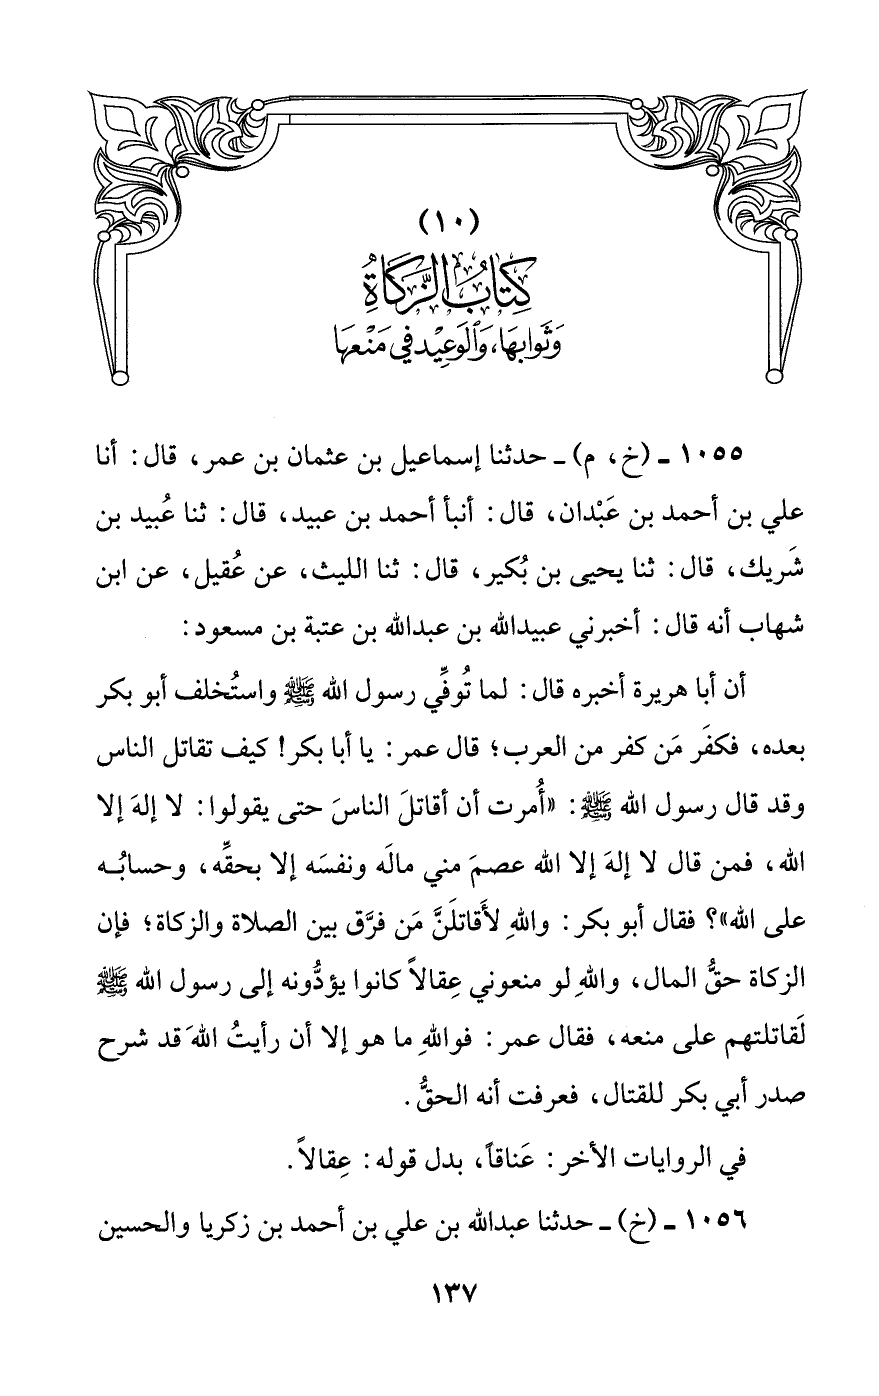 (١٠)
كِتَابُ الزَّكَاةِ
وَثَوَابِهَا، وَالْوَعِيْدِ فِي مَنْعِهَا
١٠٥٥ ـ (خ، م) ـ حدثنا إسماعيل بن عثمان بن عمر، قال: أنا
علي بن أحمد بن عَبْدان، قال: أنبأ أحمد بن عبيد، قال: ثنا عُبيد بن
شَريك، قال: ثنا يحيى بن بُكير، قال: ثنا الليث، عن عُقيل، عن ابن
شهاب أنه قال: أخبرني عبيدالله بن عبدالله بن عتبة بن مسعود:
أن أبا هريرة أخبره قال: لما تُوفِّي رسول الله ﷺ واستُخلف أبو بكر
بعده، فكفَر مَن كفر من العرب؛ قال عمر: يا أبا بكر! كيف تقاتل الناس
وقد قال رسول الله ﷺ: «أُمرت أن أقاتلَ الناسَ حتى يقولوا: لا إلهَ إلا
الله، فمن قال لا إلهَ إلا الله عصمَ مني مالَه ونفسَه إلا بحقِّه، وحسابُـه
على الله»؟ فقال أبو بكر: واللهِ لأَقاتلَنَّ مَن فرَّق بين الصلاة والزكاة؛ فإن
الزكاة حقُّ المال، واللهِ لو منعوني عِقالاً كانوا يؤدُّونه إلى رسول الله ﷺ
لَقاتلتهم على منعه، فقال عمر: فواللهِ ما هو إلا أن رأيتُ اللهَ قد شرح
صدر أبي بكر للقتال، فعرفت أنه الحقُّ.
في الروايات الأخر: عَناقاً، بدل قوله: عِقالاً.
١٠٥٦ ـ (خ) ـ حدثنا عبدالله بن علي بن أحمد بن زكريا والحسين
١٣٧